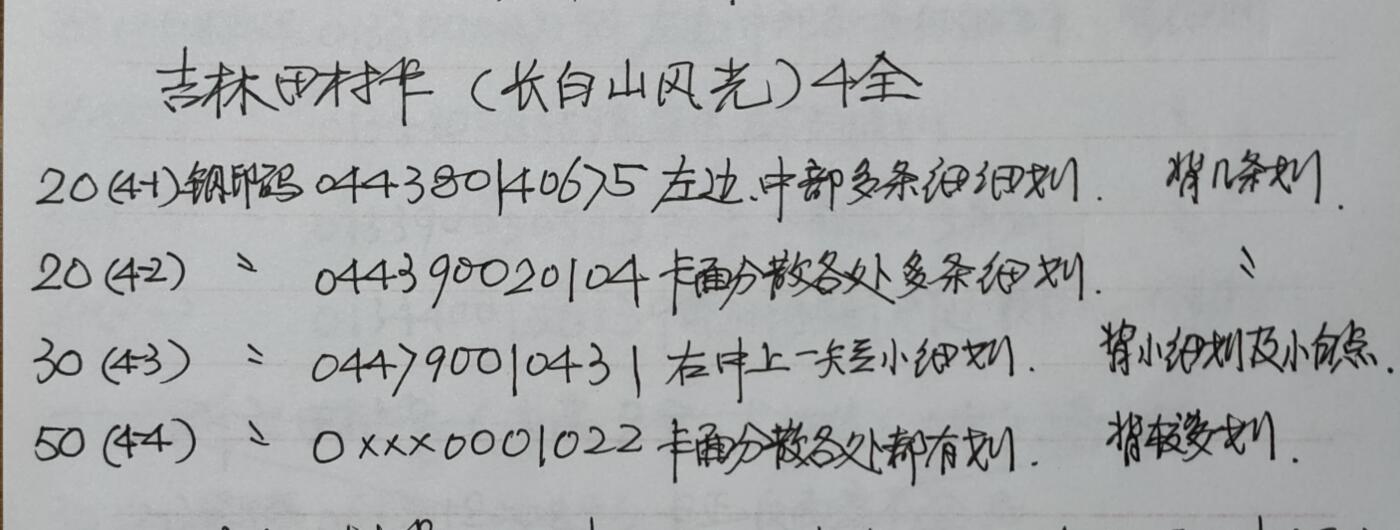 吉林田村卡（长白山风光）4全
20(4-1)钢印码 044380140675 左边、中部多条细细划. 背几条划.
20(4-2) 〃 044390020104 卡面分散各处多条细划. 〃
30(4-3) 〃 044790010431 右中上一关短小细划. 背小细划及小白点.
50(4-4) 〃 0xxx0001022 卡面分散各处都有划. 背较多划.